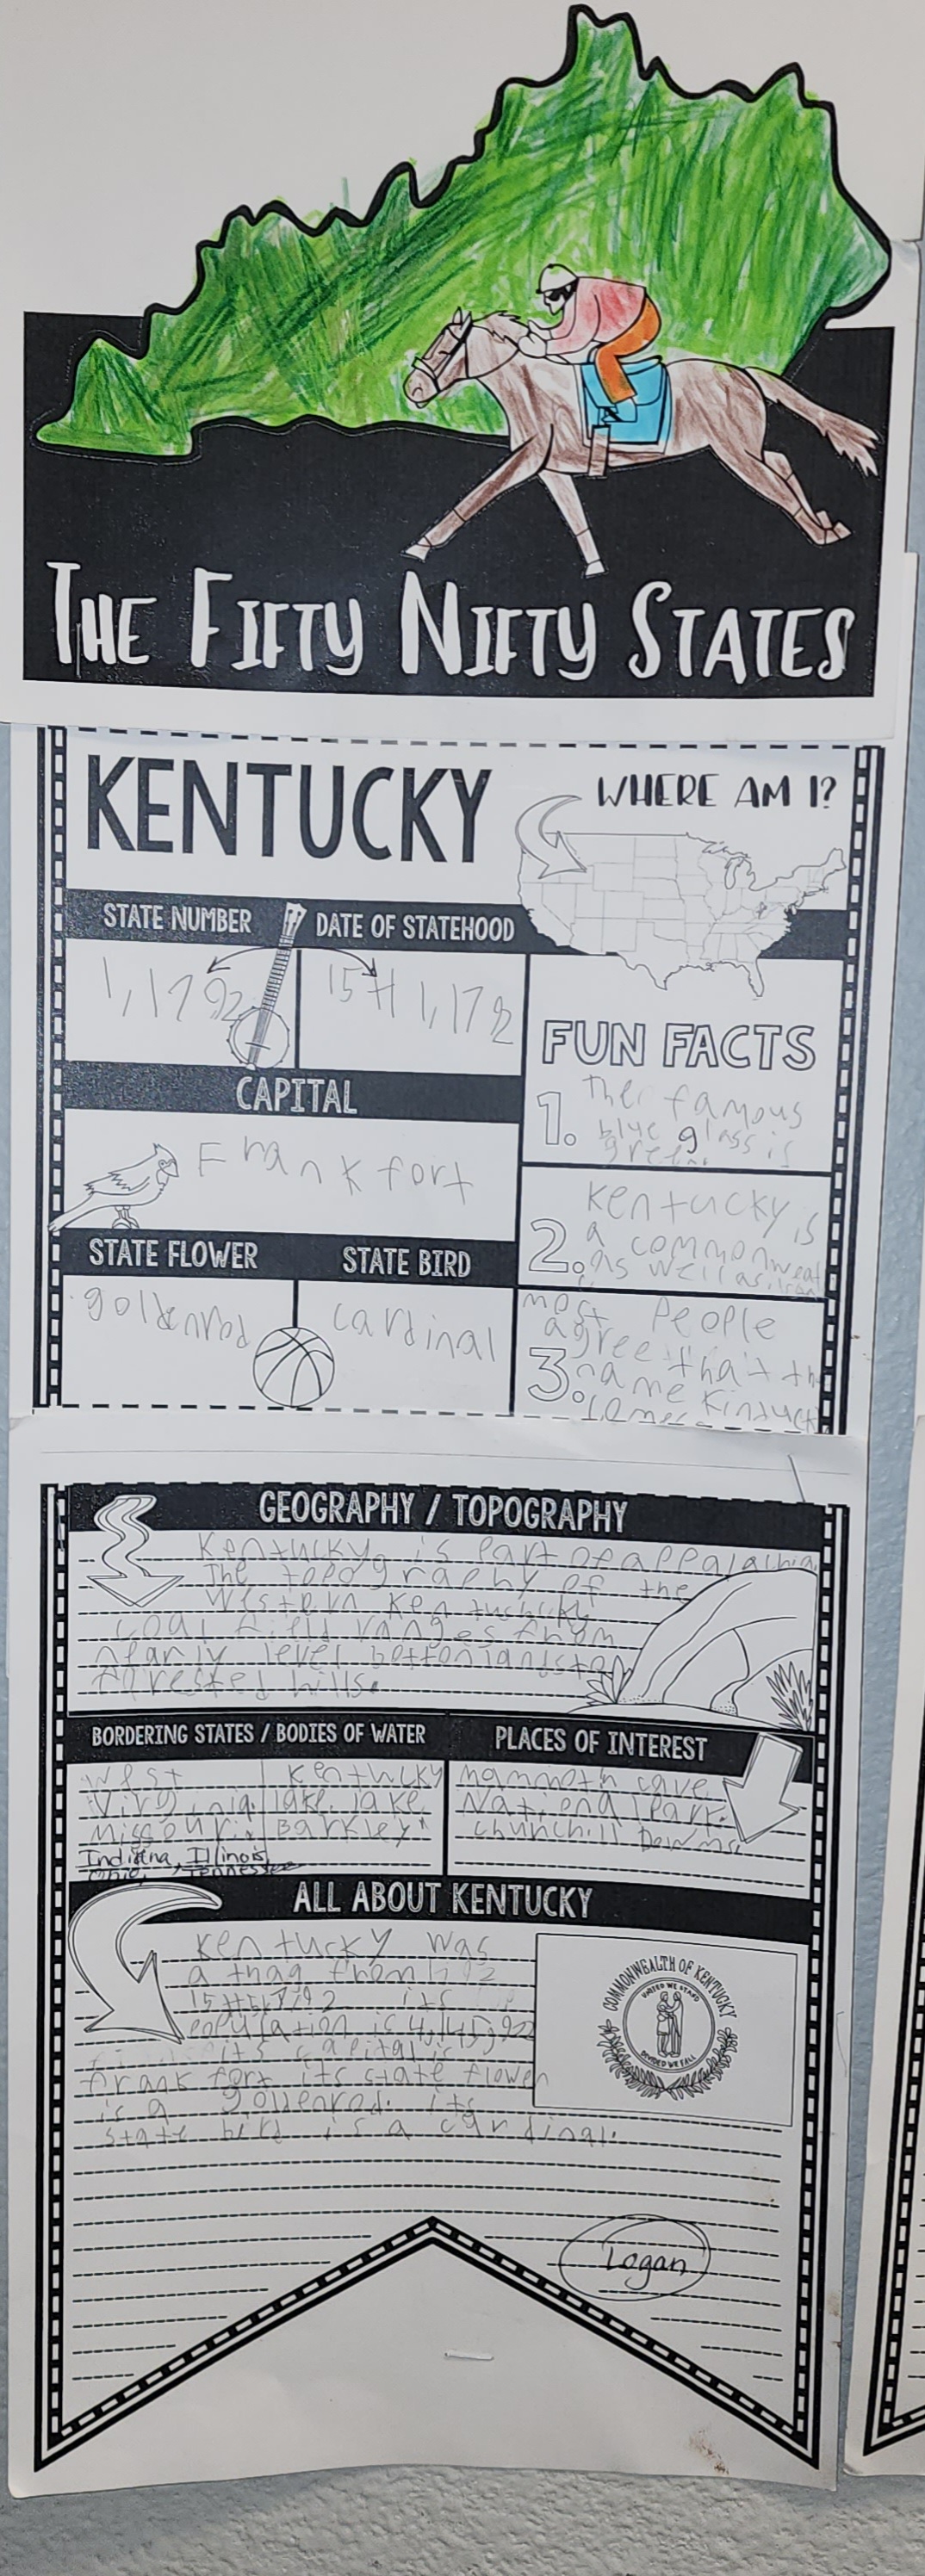 THE FIFTY NIFTY STATES
KENTUCKY
WHERE AM I?
STATE NUMBER
DATE OF STATEHOOD
1,1792
15th 1,1792
FUN FACTS
1. The famous
blue glass is
green.
CAPITAL
Frankfort
2. Kentucky is
a commonweat
as well as
STATE FLOWER
STATE BIRD
goldenrod
cardinal
3. most people
agree that th
name
GEOGRAPHY / TOPOGRAPHY
Kentucky is part of
The topography of the
Western
coal field ranges from
nearly level
forested hills.
BORDERING STATES / BODIES OF WATER
West
Virginia
Missouri
Indiana, Illinois
Ohio, Tennessee
Kentucky
lake. lake
Barkley
PLACES OF INTEREST
Mammoth cave
National park.
churchill Downs.
ALL ABOUT KENTUCKY
Kentucky was
a from
its
population is 4,145,922
its capital is
frank fort its state flower
is a goldenrod. its
state bird is a cardinal.
COMMONWEALTH OF KENTUCKY
UNITED WE STAND
DIVIDED WE FALL
Logan